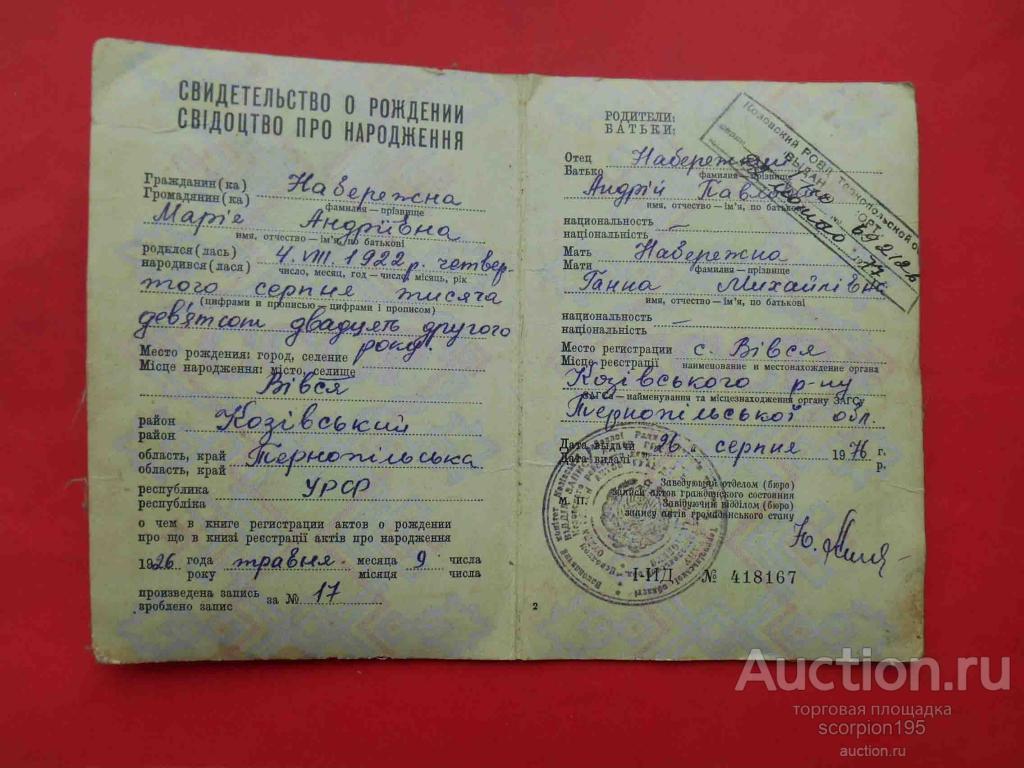 СВИДЕТЕЛЬСТВО О РОЖДЕНИИ
СВІДОЦТВО ПРО НАРОДЖЕННЯ
Гражданин(ка)
Громадянин(ка)
Набережна
фамилия — прізвище
Марія Андріївна
имя, отчество — ім'я, по батькові
родился(лась)
народився(лася)
4. VIII. 1922 р. четвер-
число, месяц, год — число, місяць, рік
того серпня тисяча
(цифрами и прописью — цифрами і прописом)
девятсот двадцять другого
року.
Место рождения: город, селение
Місце народження: місто, селище
Вівся
район
район
Козівський
область, край
область, край
Тернопільська
республика
республіка
УРСР
о чем в книге регистрации актов о рождении
про що в книзі реєстрації актів про народження
1926 года травня месяца 9 числа
року місяця числа
произведена запись
зроблено запис
за № 17
РОДИТЕЛИ:
БАТЬКИ:
Отец
Батько
фамилия — прізвище
Андрій
имя, отчество — ім'я, по батькові
национальность
національність
—
Мать
Мати
Набережна
фамилия — прізвище
Ганна Михайлівна
имя, отчество — ім'я, по батькові
национальность
національність
—
Место регистрации
Місце реєстрації
с. Вівся
наименование и местонахождение органа
Козівського р-ну
ЗАГСа — найменування та місцезнаходження органу ЗАГСу
Тернопільської обл.
Дата выдачи
Дата видачі
26 серпня 1976 г.
р.
Заведующий отделом (бюро)
записи актов гражданского состояния
М. П.
Завідуючий відділом (бюро)
запису актів громадянського стану
I-ИД № 418167
2
Козовский РОВД Тернопольской о
ВЫДАН
692126
Auction.ru
торговая площадка
scorpion195
auction.ru